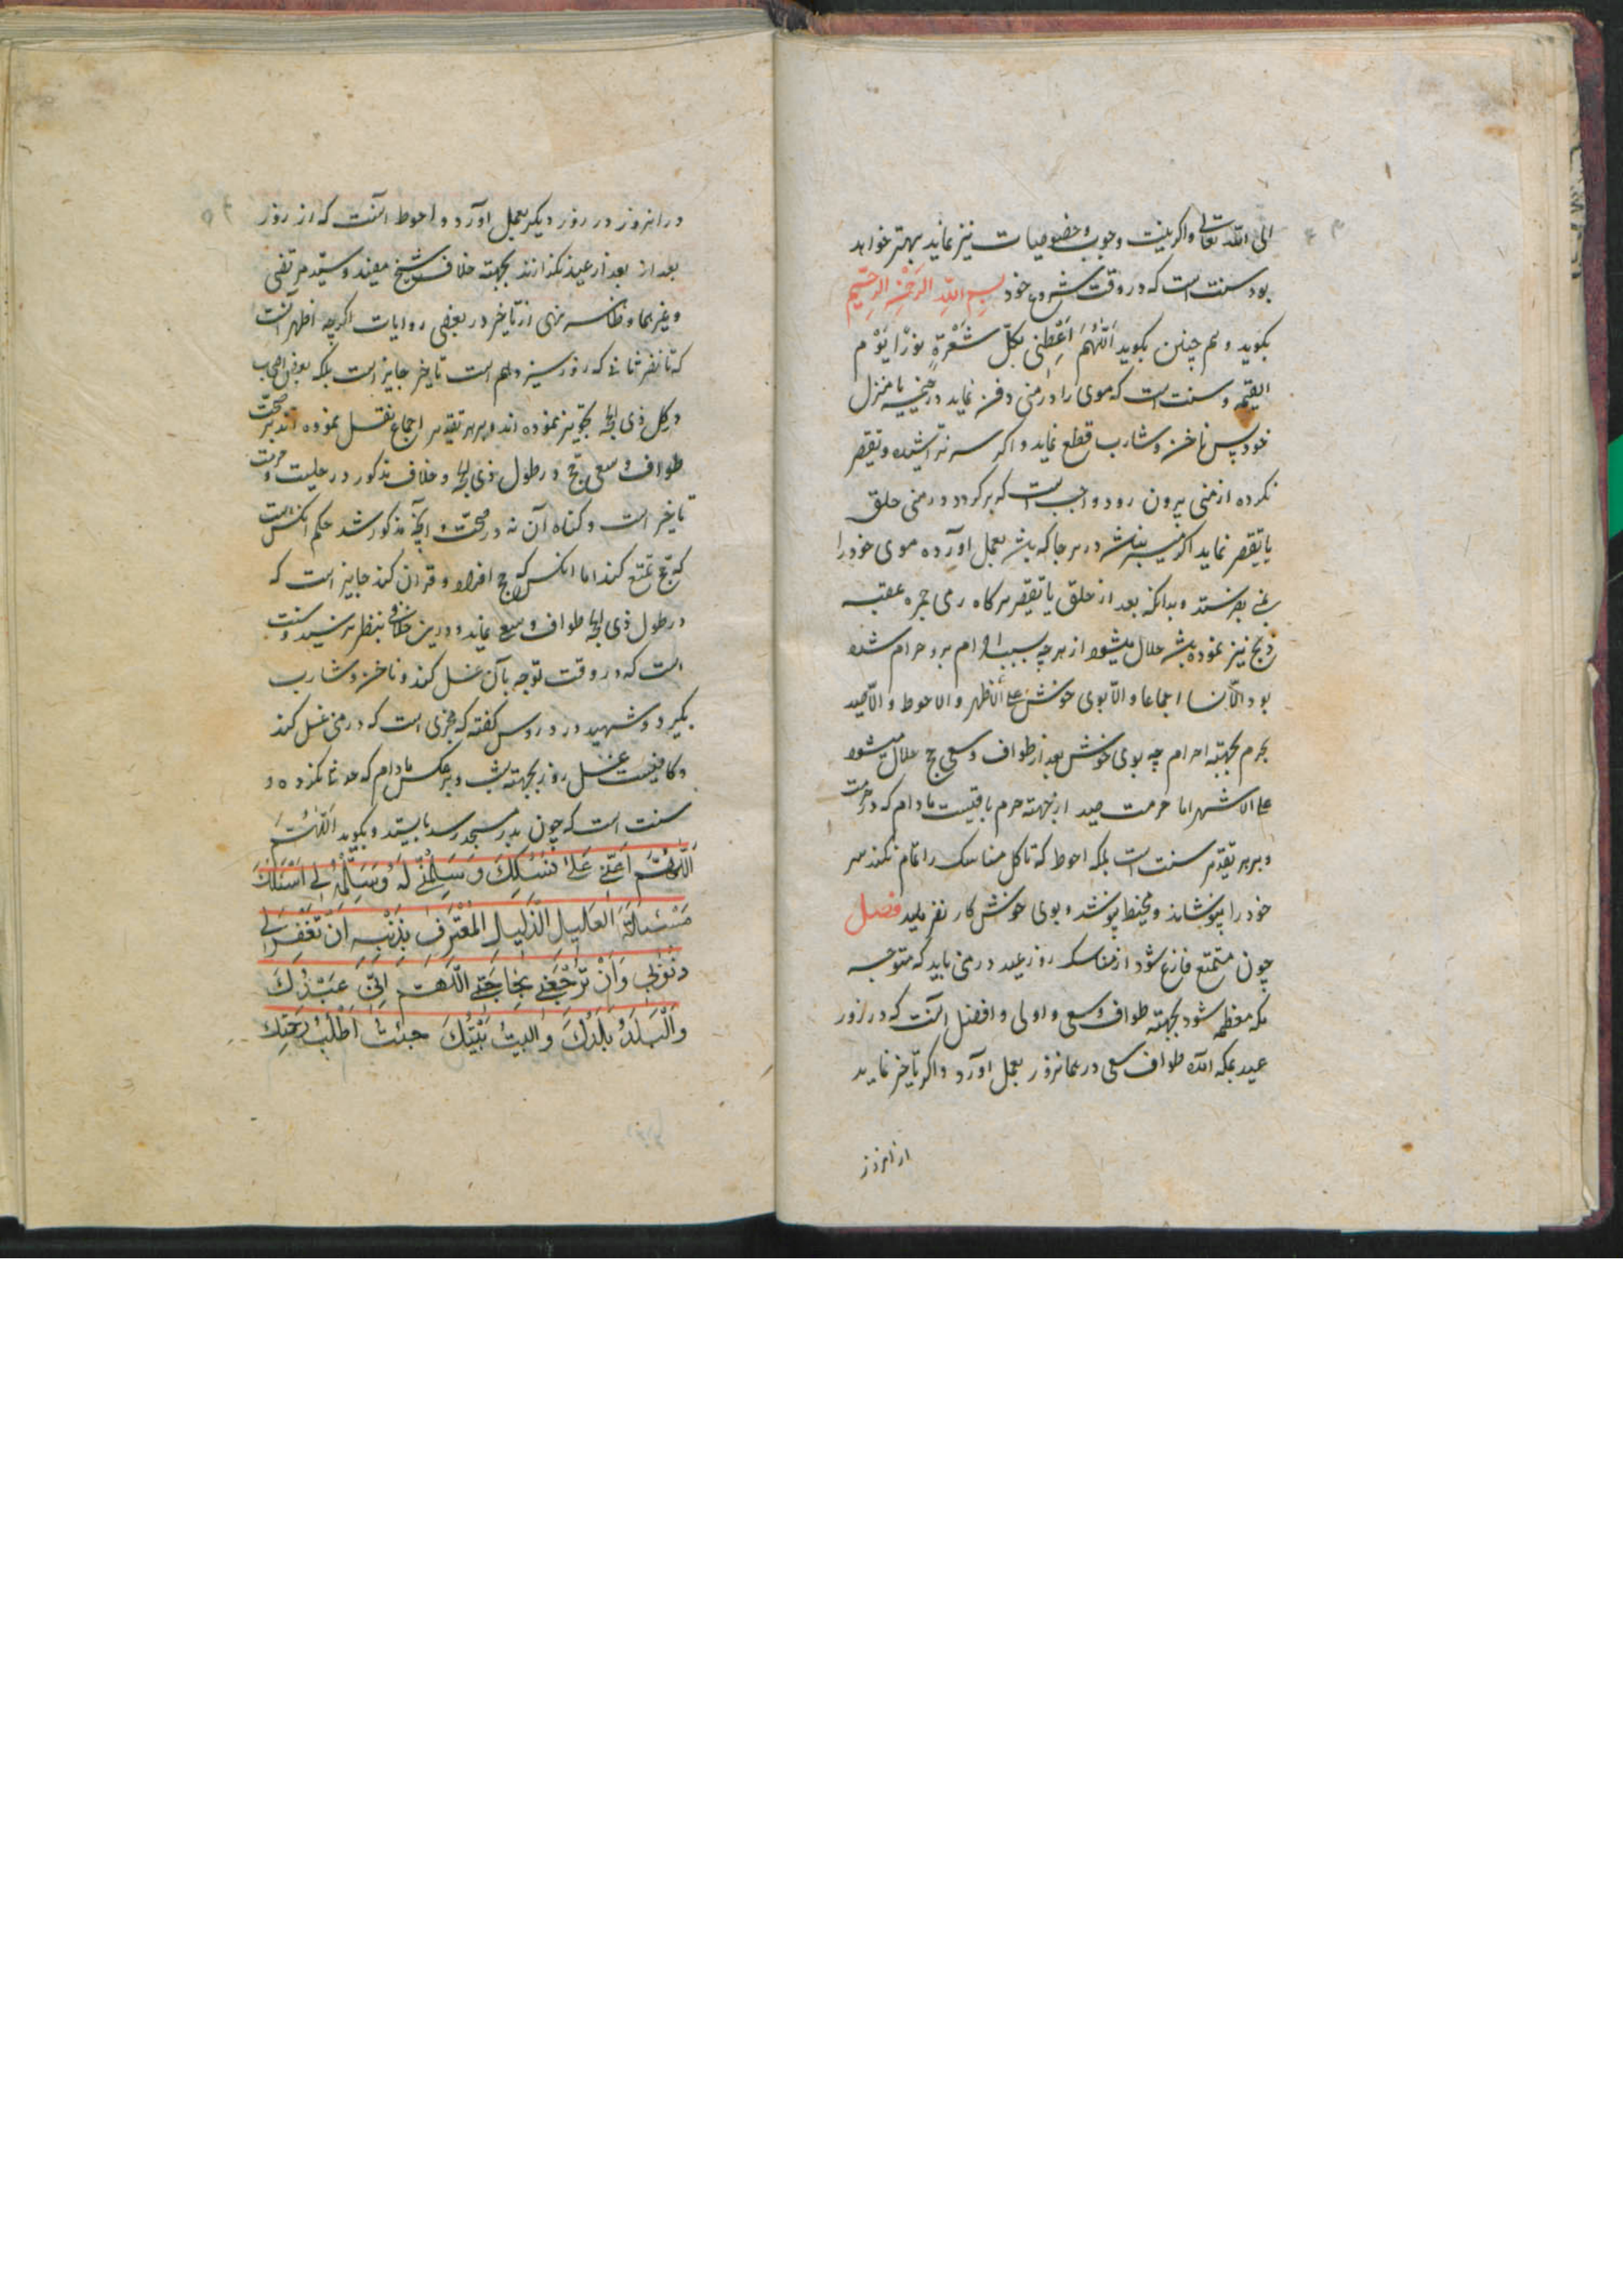 الی الله تعالی و اگر بنیت وجوب و خصوصیات نیز نماید بهتر خواهد
بود سنت است که در وقت شروع خود بسم الله الرحمن الرحیم
بکوید و هم چنین بکوید اَللّٰهُمَّ اَعْطِنی بکلّ شَعْرَةٍ نورًا یَوْمَ
القیمه و سنت است که موی را در منی دفن نماید در خیمه یا منزل
خود پس ناخن و شارب قطع نماید و اکر سر نتراشیده و تقصیر
نکرده از منی بیرون رود واجب است که برکردد و در منی حلق
یا تقصیر نماید اکر میسر نباشد در هر جا که باشد بعمل آورده موی خود را
بمنی بفرستد و بدانکه بعد از حلق یا تقصیر هرکاه رمی جمره عقبه
و ذبح نیز نموده باشد حلال میشود از هر چه بسبب احرام برو حرام شده
بود الّا نسا اجماعا و الّا بوی خوش علی الاظهر و الاحوط و الّا صید
بجرم بجهته احرام چه بوی خوش بعد از طواف و سعی حج حلال میشود
علی الاشهر اما حرمت صید از جهته حرم باقیست مادام که در حرمت
و بر هر تقدیر سنت است بلکه احوط که تا کل مناسک را تمام نکند سر
خود را نپوشاند و مخیط نپوشد و بوی خوش کار نفرماید فصل
چون متمتع فارغ شود از مناسک روز عید در منی باید که متوجه
مکه معظمه شود بجهته طواف و سعی و اولی و افضل آنست که در روز
عید بمکه آمده طواف و سعی در همانروز بعمل آورد و اکر تأخیر نماید
از انروز
در انروز در روز دیکر بعمل آورد و احوط آنست که از روز
بعد از بعد از عید نکذارند بجهته خلاف شیخ مفید و سید مرتضی
و غیرهما و ظاهر نهی از تأخیر در بعضی روایات اکرچه اظهر آنست
که تا نفر ثانی که روز سیزدهم است تأخیر جایز است بلکه بعضی اصحاب
در کل ذی الحجه تجویز نموده اند و بر هر تقدیر اجماع نقل نموده اند بر صحت
طواف و سعی حج در طول ذی الحجه و خلاف مذکور در حلیت و حرمت
تأخیر است و کناه آن نه در صحت و آنچه مذکور شد حکم آنکس است
که حج تمتع کند اما آنکس که حج افراد و قران کند جایز است که
در طول ذی الحجه طواف و سعی نماید و درین خلافی بنظر نرسید و سنت
است که در وقت توجه بآن غسل کند و ناخن و شارب
بکیرد و شهید در دروس کفته که مجزی است که در منی غسل کند
و کافیست غسل روز بجهته شب و بر عکس مادام که حدثا نکرده و
سنت است که چون بدر مسجد رسد بایستد و بکوید اَللّٰهُمَّ
اَللّٰهُمَّ اَعِنّی عَلی نُسُکِكَ وَ سَلِّمْنی لَهُ وَ سَلِّمْهُ لی اَسْئَلُكَ
مَسْئَلَةَ العَلیلِ الذَّلیلِ المُعْتَرِفِ بِذَنْبِهِ اَنْ تَغْفِرَ لی
ذنوبی وَ اَنْ تَرْجِعَنی بِحاجَتی اَللّٰهُمَّ اِنّی عَبْدُكَ
وَ الْبَلَدُ بَلَدُكَ وَ البیتُ بَیْتُكَ جِئْتُ اَطْلُبُ رَحْمَتَكَ